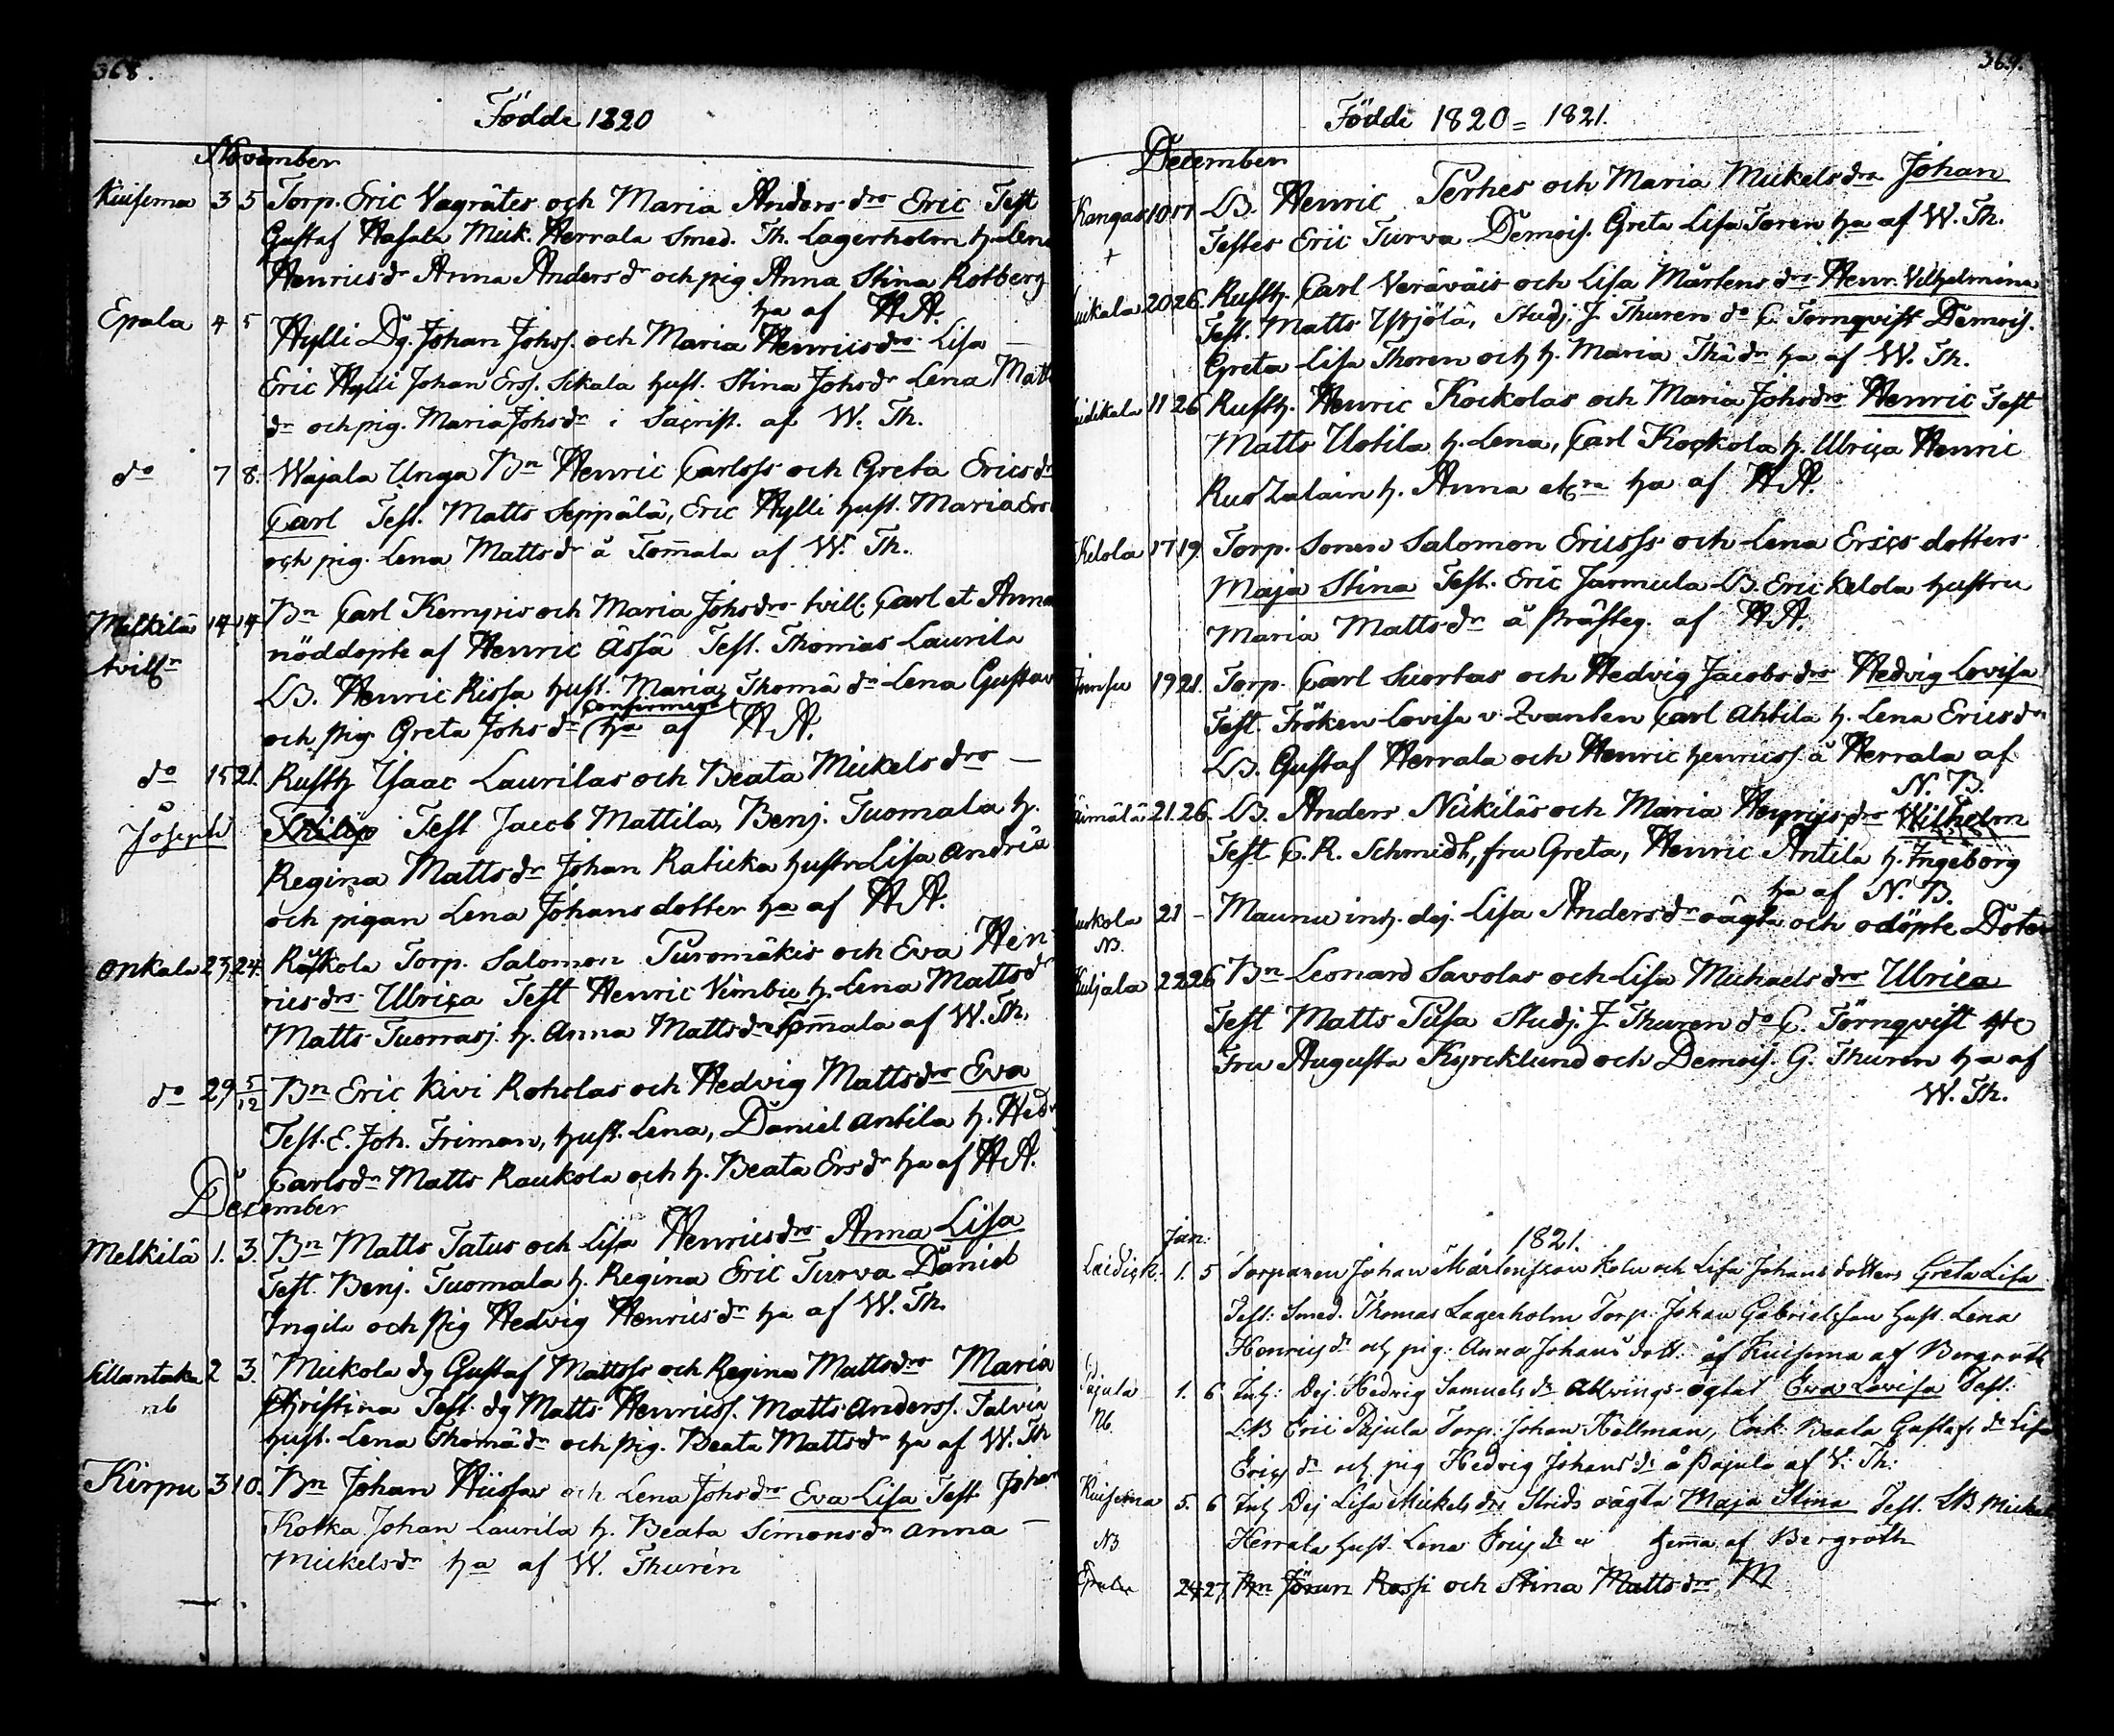 368.
Födde 1820
November
Kuisema 3 5 Torp. Eric Vagrâtes och Maria Anders drs Eric Test
Gustaf Hasala Mick. Herrala Smed. Th. Lagerholm h. Lena
Henricsdr Anna Andersdr och pig Anna Stina Rotberg
ha af A A.
Epala 4 5 Hylli Dg. Johan Johss. och Maria Henricsdrs Lisa —
Eric Hylli Johan Erss. Sikala hust. Stina Johsdr Lena Matts
dr och pig. Maria Johsdr i Sacrist. af W. Th.
do 7 8. Wajala Unga Bn Henric Carlss och Greta Ericsdr
Carl Test. Matts Seppälä, Eric Hylli hust. Maria Ers
och pig. Lena Mattsdr å Tom̄ala af W. Th.
Melkilä 14 14 Bn Carl Kempis och Maria Johsdrs tvill. Carl et Anna
tvillr nöddopte af Henric Ässä Test. Thomas Laurila
LB. Henric Rissa hust. Maria Thomä dr Lena Gustav
Confirmegt
och pig Greta Johsdr (ha af A A.
do 15 21. Rusth Isaac Laurilas och Beata Mickelsdrs —
Joseph Philip Test Jacob Mattila, Benj. Tuomala h.
Regina Mattsdr Johan Raticka hustru Lisa Andriä
och pigan Lena Johansdotter ha af A A.
Onkala 23 24. Räskola Torp. Salomon Turomäkis och Eva Hen
ricsdrs Ulrica Test Henric Vimbu h. Lena Mattsdr
Matts Tuomasj. h. Anna Mattsdr Tom̄ala af W. Th.
do 29 5/12 Bn Eric Kivi Roholas och Hedvig Mattsdrs Eva
Test. E. Joh. Friman, hust. Lena, Daniel Antila h. Hedv
Carlsdr Matts Raukola och h. Beata Ersdr ha af A A.
December
Melkilä 1. 3. Bn Matts Tatus och Lisa Henricsdrs Anna Lisa
Test. Benj. Tuomala h. Regina Eric Turva Daniel
Ingila och pig Hedvig Henricsdr ha af W. Th.
Sillantaka 2 3. Mickola dg Gustaf Mattss och Regina Mattsdrs Maria
nb Christina Test. dg Matts Henricss. Matts Anderss. Talvia
hust. Lena Thomädr och pig. Beata Mattsdr ha af W. Th
Kirpu 3 10. Bn Johan Hissas och Lena Johsdrs Eva Lisa Test Johan
Kotka Johan Laurila h. Beata Simonsdr Anna —
Mickelsdr ha af W. Thurén
369.
Födde 1820 = 1821.
December
Kangas 10 17 LB. Henric Perhes och Maria Mickelsdrs Johan
+ Testes Eric Turva Demois. Greta Lisa Toren ha af W. Th.
uikala 20 26. Rusth. Carl Veräväis och Lisa Mårtensdrs Henr. Vilhelmina
Test. Matts Yrjölä, Studj. J. Thuren do C. Törnqvist Demois.
Greta Lisa Thoren och h. Maria Thädr ha af W. Th.
uidikala 11 26 Rusth. Henric Kockolas och Maria Johsdrs Henric Test
Matts Uotila h. Lena, Carl Kockola h. Ulrica Henric
h. Anna ha af A A.
Kelola 17 19. Torp. Sonen Salomon Ericss och Lena Erics dotters
Maja Stina Test. Eric Jarmula LB. Eric Kelola hustru
Maria Mattsdr å Prästeg. af A A.
19 21. Torp. Carl Suortas och Hedvig Jacobsdrs Hedvig Lovisa
Test. Fröken Lovisa v. Zvanten Carl Ahtila h. Lena Ericsdr
LB. Gustaf Herrala och Henric Henricss. å Herrala af
N. B.
21. 26. LB. Anders Nickiläs och Maria Henricsdrs Wilhelm
Test C. R. Schmidt, fru Greta, Henric Antila h. Ingeborg
ha af N. B.
uokola 21 – Maunu inh. dej. Lisa Andersdr oägta och odöpte Doter
NB.
Kuljala 22 26 Bn Leonard Savolas och Lisa Michaelsdrs Ulrica
Test Matts Pusa Studj. J. Thuren do C. Törnqvist
Fru Augusta Kyrcklund och Demois. G. Thuren ha af
W. Th.
1821.
Jan:
Laidick. 1. 5 Torparen Johan Mårtensson Kolu och Lisa Johans dotters Greta Lisa
Test: Smed. Thomas Lagerholm Torp. Johan Gabrielsson hust. Lena
Henricsdr och pig: Anna Johans dott. af Kuisema af Bergroth
Pajula 1. 6 Inh: Dej Hedvig Samuelsdr Allvings ogtat Eva Lovisa Test:
Nb. LB Eric Pajula Torp. Johan Hellman, Enk. Beata Gustafsdr Lisa
Ericsdr och pig Hedvig Johansdr å Pajula af V: Th:
Kuisema 5. 6 Inh Dej Lisa Mickelsdrs Strids oägta Maja Stina Test. LB. Mickel
NB Herrala hust Lena Ericsdr hem̄a af Bergroth
Epala 24 27. Bn Jöran Rossi och Stina Mattsdrs M